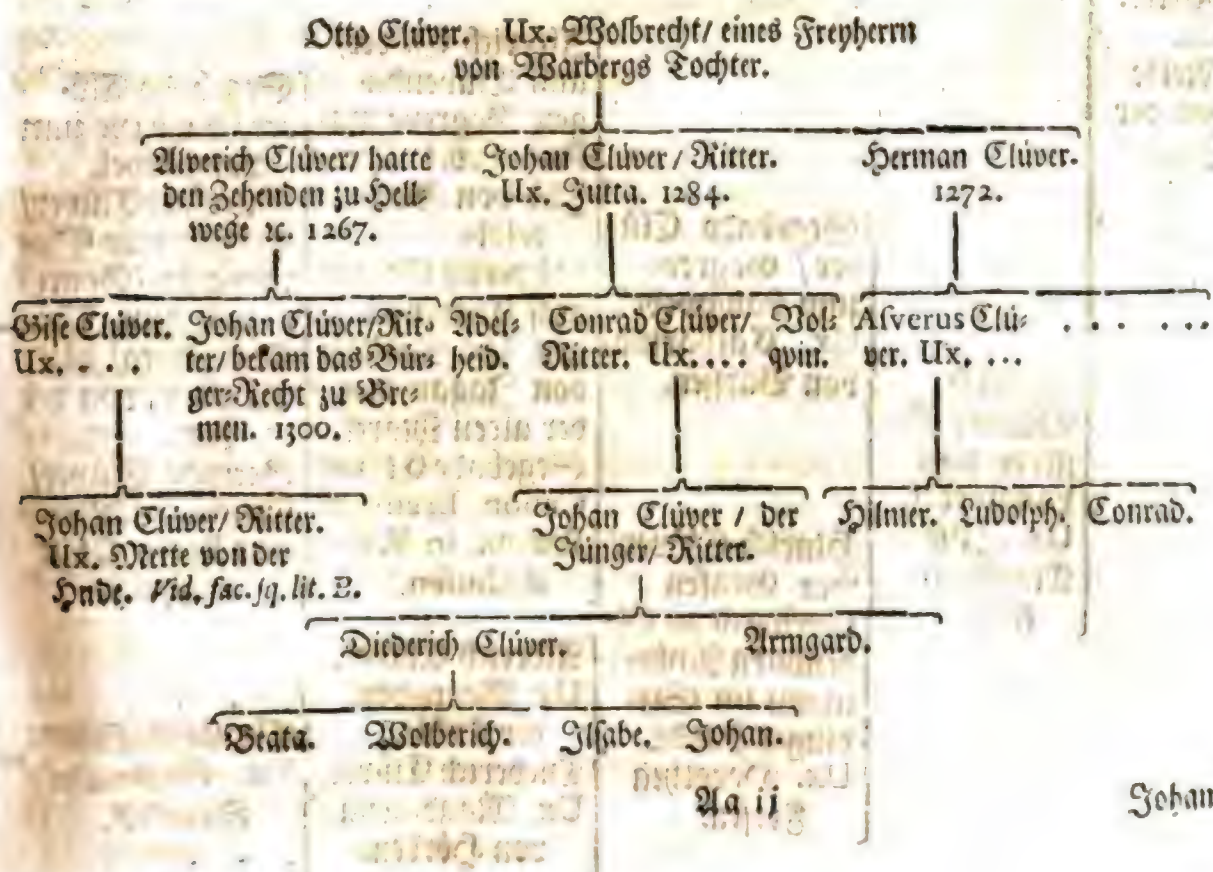 Otto Clüver. Ux. Wolbrecht/ eines Freyherrn
von Warbergs Tochter.
Alverich Clüver/ hatte
den Zehenden zu Hell-
wege ꝛc. 1267.
Johan Clüver / Ritter.
Ux. Jutta. 1284.
Herman Clüver.
1272.
Gise Clüver.
Ux. . . .
Johan Clüver/Rit-
ter/ bekam das Bür-
ger-Recht zu Bre-
men. 1300.
Adel-
heid.
Conrad Clüver/
Ritter. Ux. . . .
Vol-
qvin.
Alverus Clü-
ver. Ux. ...
. . . . ...
Johan Clüver/ Ritter.
Ux. Mette von der
Hude. Vid. fac. sq. lit. B.
Johan Clüver / der
Jünger/ Ritter.
Hilmer. Ludolph. Conrad.
Diederich Clüver. Armgard.
Beata. Wolberich. Ilsabe. Johan.
Aa ij
Johan